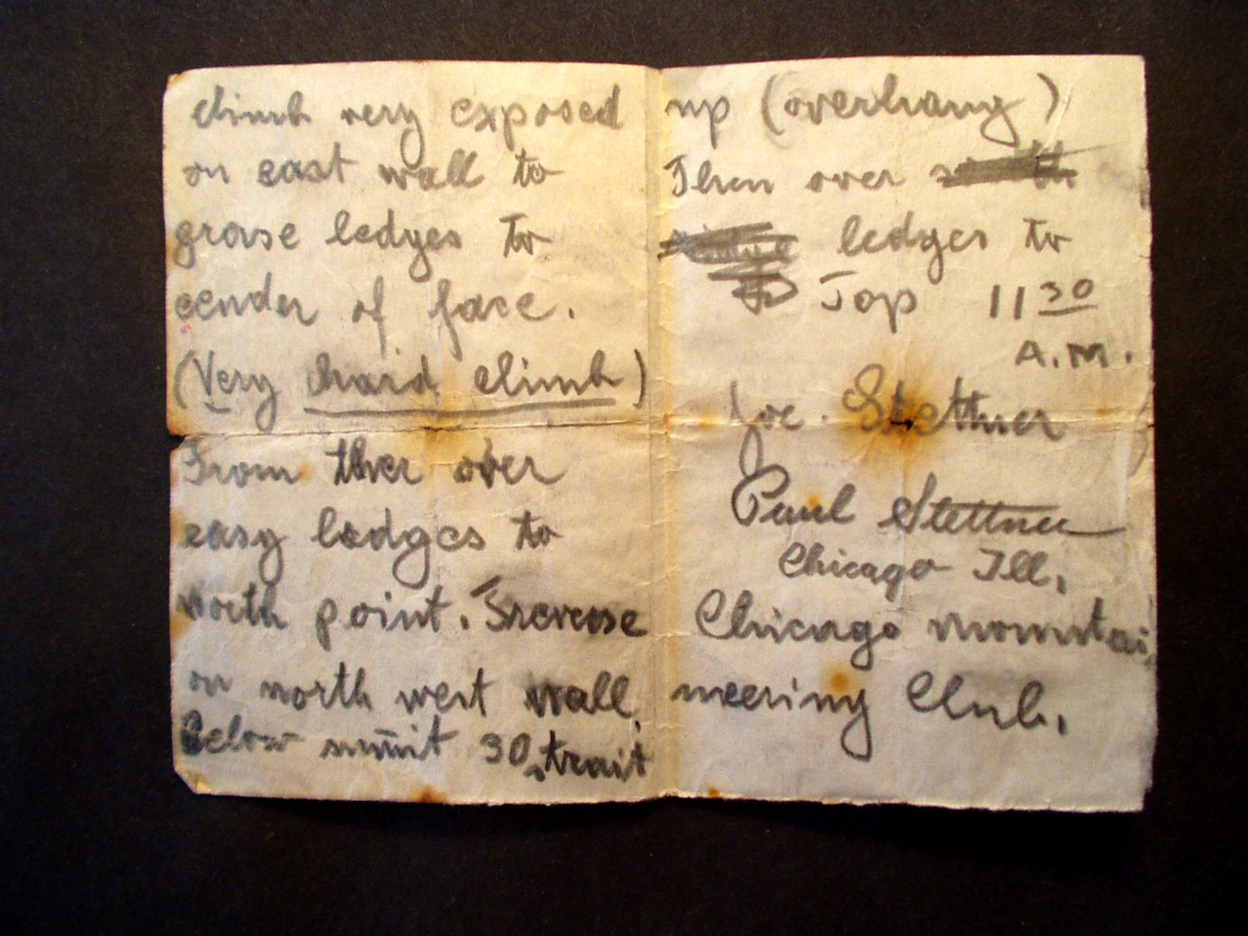 climb very exposed
on east wall to
grase ledges to
cender of face.
(Very hard climb)
From ther over
easy ledges to
north point. Treverse
on north west wall
Below sum̄it 30, strait
up (overhang)
Then over
ledges to
Top 11 30
A.M.
Joe. Stettner
Paul Stettner
Chicago Ill,
Chicago mountai
neering Club,